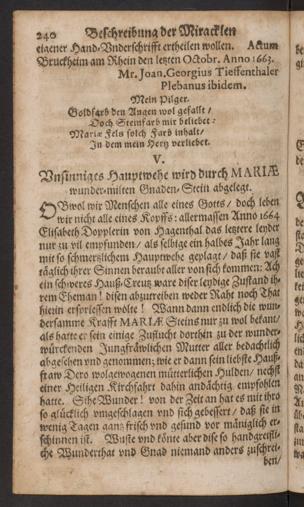 240 Beschreibung der Miracklen
eigener Hand-Vnderschrifft ertheilen wollen. Actum
Bruckheim am Rhein den letzten Octobr. Anno 1663.
Mr. Joan. Georgius Tieffenthaler
Plebanus ibidem.
Mein Pilger.
Goldfarb den Augen wol gefallt /
Doch Steinfarb mir beliebet:
Mariæ Fels solch Farb inhalt /
In dem mein Hertz verliebet.
V.
Vnsinniges Hauptwehe wird durch MARIÆ
wunder-milten Gnaden-Stein abgelegt.
OBwol wir Menschen alle eines Gotts / doch leben
wir nicht alle eines Kopffs: allermassen Anno 1664
Elisabeth Dopplerin von Hagenthal das letztere leyder
nur zu vil empfunden / als selbige ein halbes Jahr lang
mit so schmertzlichem Hauptwehe geplagt / daß sie vast
täglich jhrer Sinnen beraubt aller von sich kommen: Ach
ein schweres Hauß-Creutz ware diser leydige Zustand jh-
rem Eheman! disen abzutreiben weder Raht noch That
hierin erspriessen wölte! Wann dann endlich die wun-
dersamme Krafft MARIÆ Steins nur zu wol bekant /
als hatte er sein einige Zuflucht dorthin zu der wunder-
würckenden Jungfräwlichen Mutter aller bedachtlich
abgesehen vnd genommen; wie er dann sein liebste Hauß-
fraw Dero wolgewogenen müterlichen Hulden / nechst
einer Heiligen Kirchfahrt dahin andächtig empfohlen
hatte. Sihe Wunder! von der Zeit an hat es mit jhro
so glücklich vmgeschlagen vnd sich gebessert / daß sie in
wenig Tagen gantz frisch vnd gesund vor mäniglich er-
schinnen ist. Wuste vnd könte aber dise so handgreiffli-
che Wunderthat vnd Gnad niemand anders zuschrei-
ben /